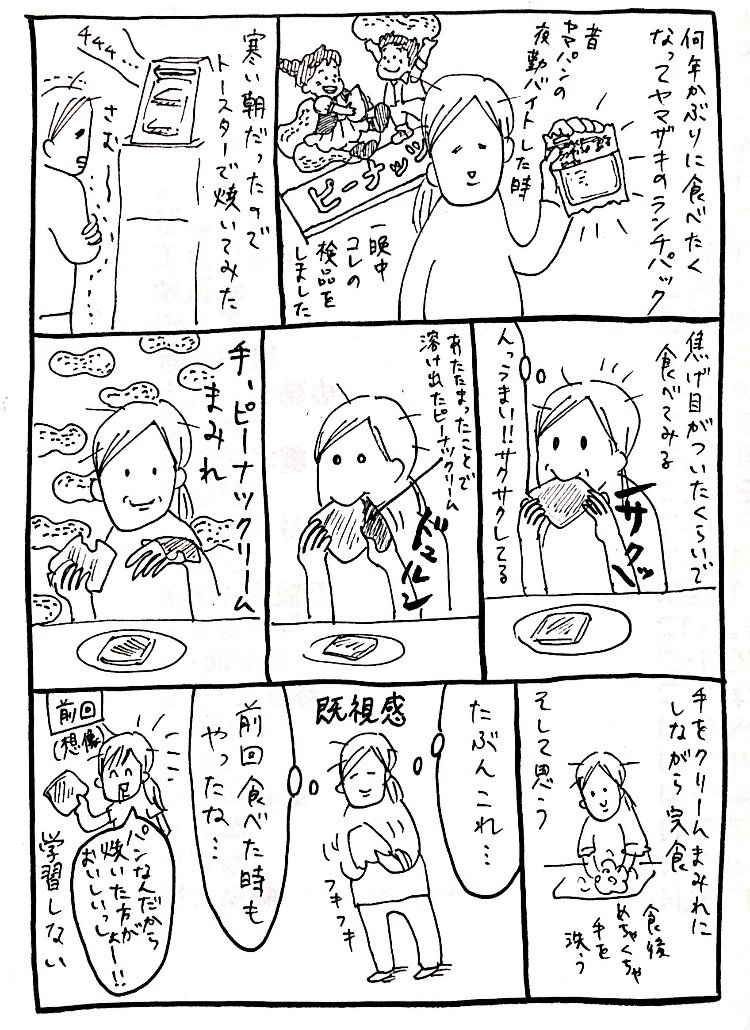 何年かぶりに食べたく
なってヤマザキのランチパック
昔
ヤマパンの
夜勤バイトした時
ピーナッツ
一晩中
コレの
検品を
しました
寒い朝だったので
トースターで焼いてみた
さむ〜
焦げ目がついたくらいで
食べてみる
サクッ
んっうまい!!サクサクしてる
あたたまったことで
溶け出たピーナツクリーム
ドゥルン
手、ピーナツクリーム
まみれ
手をクリームまみれに
しながら完食
食後
めちゃくちゃ
手を
洗う
そして思う
たぶんこれ…
既視感
フキフキ
前回食べた時も
やったな…
前回
(想像)
パンなんだから
焼いた方が
おいしいっしょー!!
学習しない